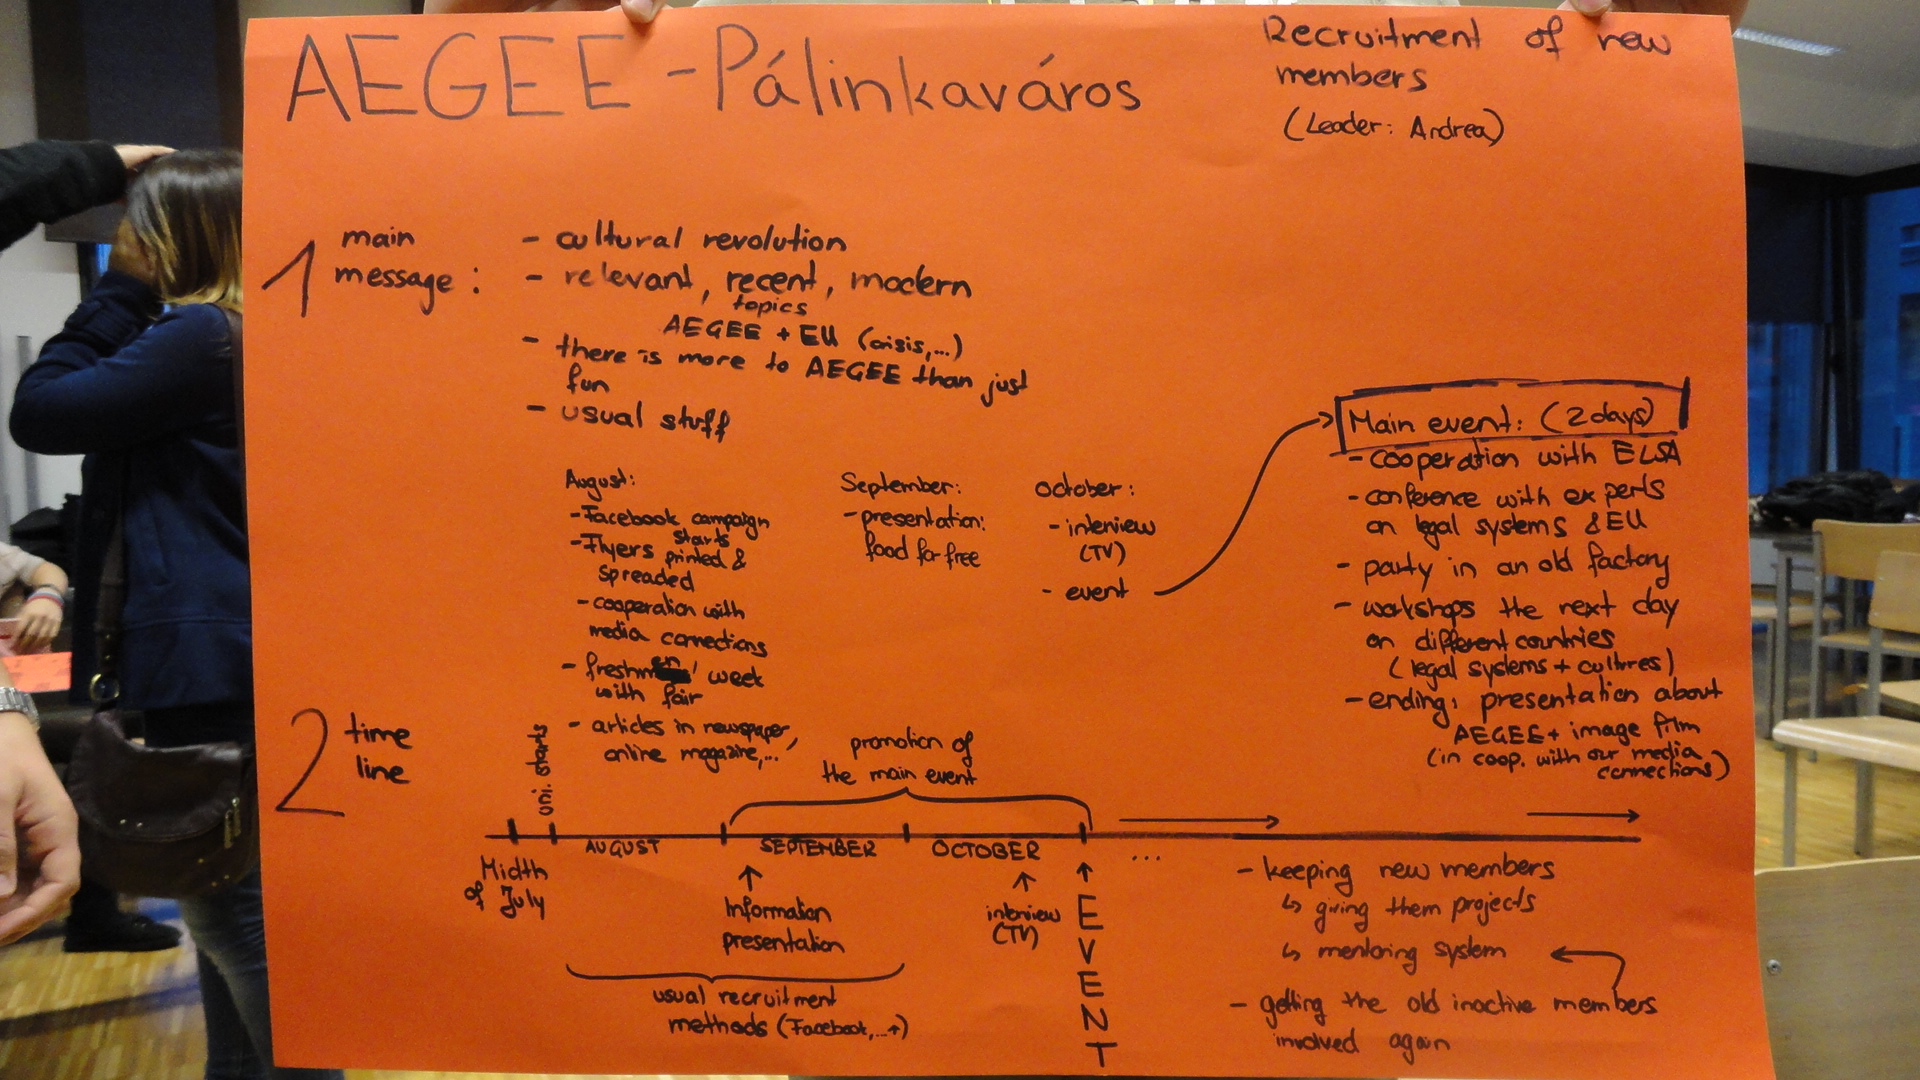 AEGEE - Pálinkaváros
Recruitment of new
members
(Leader: Andrea)
1 main
message:
- cultural revolution
- relevant, recent, modern
topics
AEGEE + EU (crisis,...)
- there is more to AEGEE than just
fun
- usual stuff
August:
- Facebook campaign
starts
- Flyers printed &
spreaded
- cooperation with
media connections
- freshmen' week
with fair
- articles in newspaper,
online magazine,...
September:
- presentation:
food for free
October:
- interview
(TV)
- event
Main event: (2 days)
- cooperation with ELSA
- conference with experts
on legal systems & EU
- party in an old factory
- workshops the next day
on different countries
(legal systems + cultures)
- ending: presentation about
AEGEE + image film
(in coop. with our media
connections)
2 time
line
uni. starts
promotion of
the main event
Midth
of July
AUGUST
SEPTEMBER
OCTOBER
...
Information
presentation
interview
(TV)
EVENT
usual recruitment
methods (Facebook,...)
- keeping new members
↳ giving them projects
↳ mentoring system
- getting the old inactive members
involved again